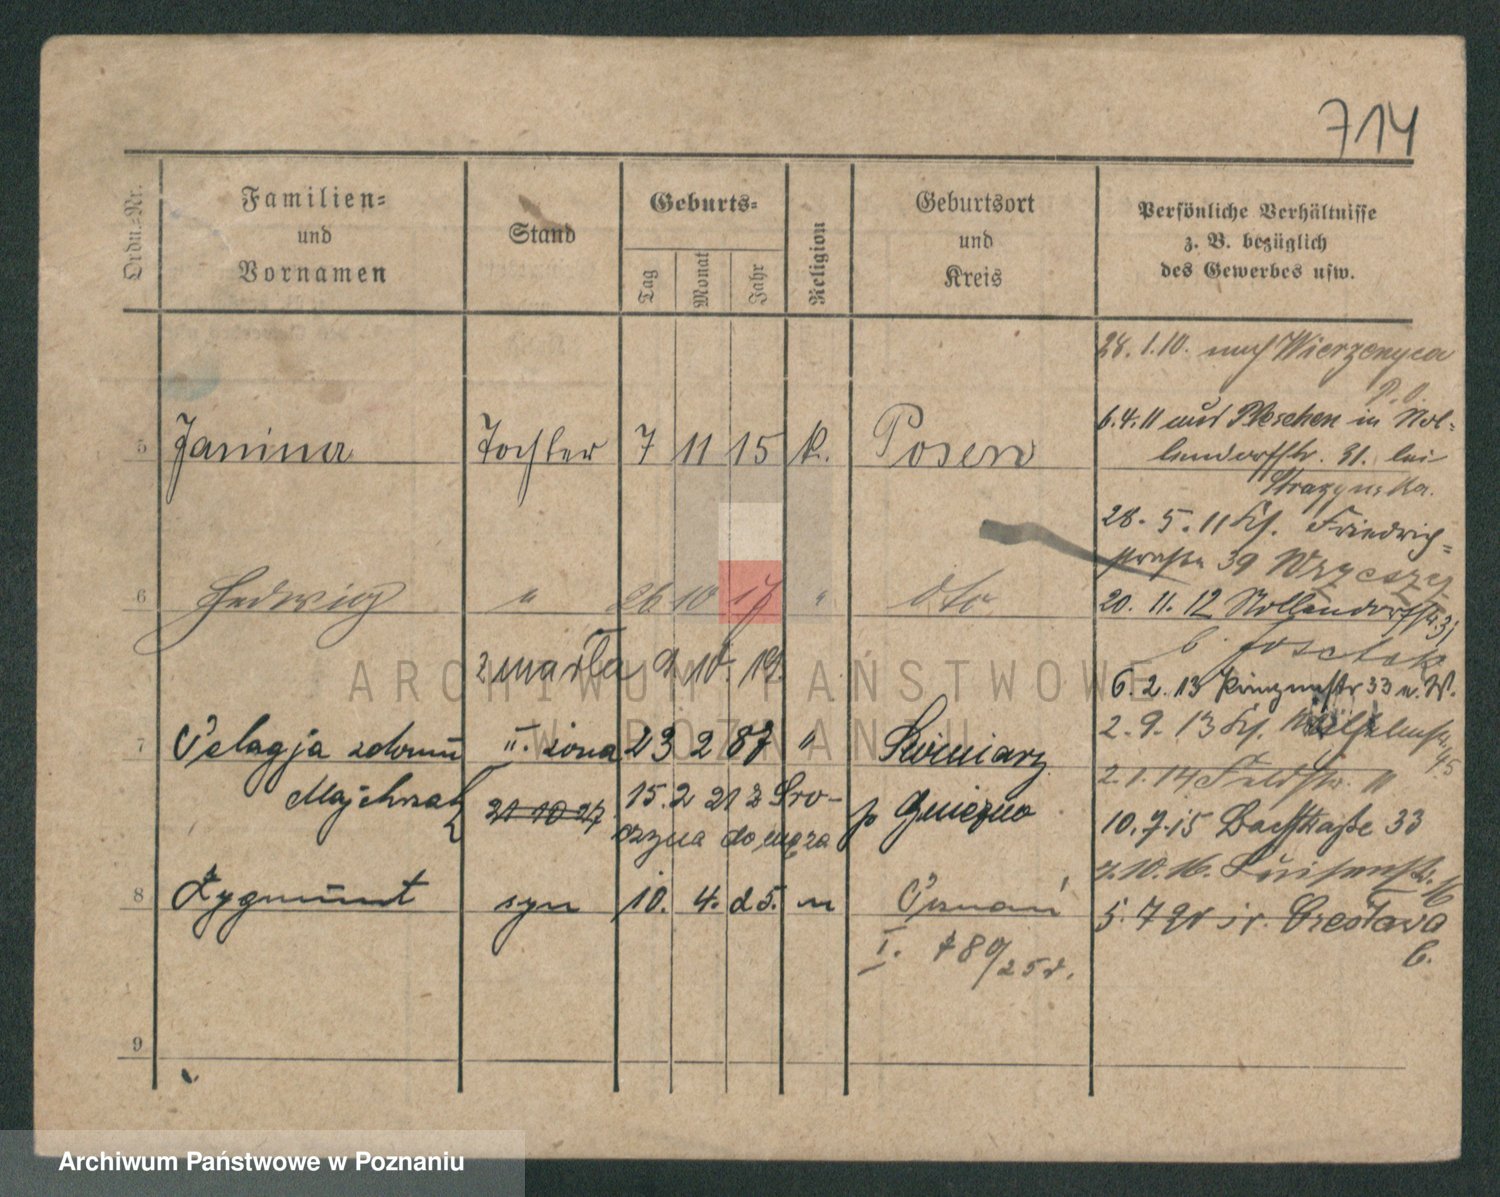 714
Ordn.-Nr.
Familien-
und
Vornamen
Stand
Geburts-
Tag
Monat
Jahr
Religion
Geburtsort
und
Kreis
Persönliche Verhältnisse
z. B. bezüglich
des Gewerbes usw.
28. 1. 10. nach Wierzenyca
P. O.
5 Janina Tochter 7 11 15 k. Posen
6.4.11 aus Pleschen in Nol-
lendorffstr. 31. bei
28. 5. 11 Friedrich-
straße 39
6 Hedwig " 26 10 17 " dto
20. 11. 12 Nollendorffstr. 31
b.
zmarła 9. 10. 19.
6. 2. 13 Prinzenstr 33 n. W.
7 Pelagja II. żona 23 2 87 " Swiniary
2. 9. 13 45
Majchrzak 21 10 27 15. 2 21 z Gro-
dzyna do męża
p Gniezno
2. 1. 14 Feldstr. 11
10. 7. 15 Bachstraße 33
7. 10. 16. Luisenstr. 16
8 Zygmunt syn 10. 4. 25. " Poznań
5. 7 21 Czesława
6.
I. 789/25 r.
9
ARCHIWUM PAŃSTWOWE
W POZNANIU
Archiwum Państwowe w Poznaniu